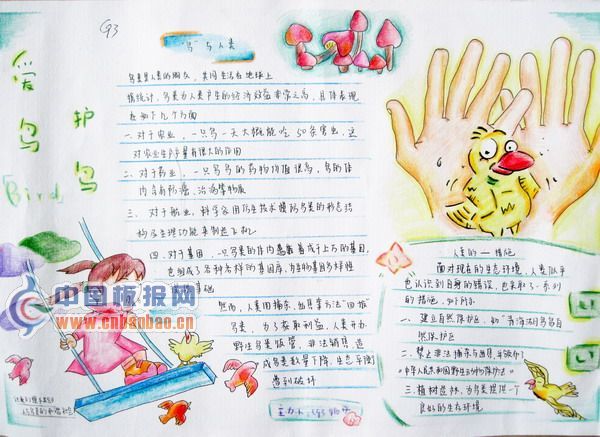 93
爱鸟
护鸟
「Bird」
"鸟"与人类
鸟类是人类的朋友，共同生活在地球上
据统计，鸟类为人类产生的经济效益非常之高，具体表现
在如下几个方面
一、对于农业，一只鸟一天大概能吃50条害虫，这
对农业生产有很大的作用
二、对于药业，一只鸟的药物价值很高，鸟的体
内含有防癌、治病等物质
三、对于航业，科学家用仿生技术模仿鸟类的形态结
构与生理功能来制造飞机
四、对于基因，一只鸟类的体内悬着成千上万的基因，
也组成了各种各样的基因库，为生物基因多样性
然而，人类用捕杀、出售等方法"回报"
鸟类，为了获取利益，人类开办
野生鸟类饭馆，非法销售，造
成鸟类数量下降，生态平衡
遭到破坏
人类的一措施
面对现在的生态环境，人类似乎
也认识到自身的错误，也采取了一系列
的措施，如下所示
一、建立自然保护区，如"青海湖鸟岛自
然保护区
二、禁止非法捕杀与出售，并颁布了
《中华人民共和国野生动物保护法》
三、植树造林，为鸟类提供一个
良好的生态环境
中国板报网
www.cnbanbao.cn